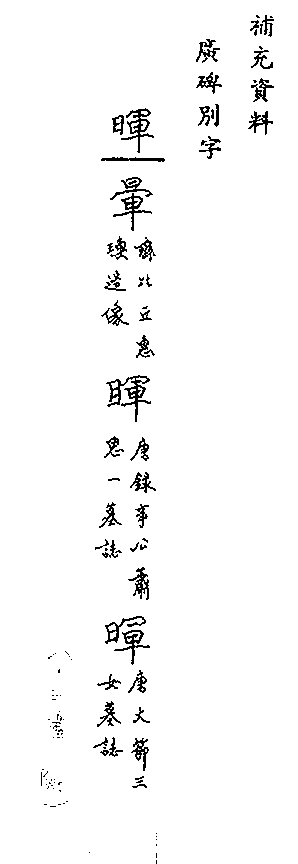 補充資料
廣碑別字
暉
暈 齊比丘惠
瓊造像
暉 唐錄事公蕭
思一墓誌
暉 唐大節三
女墓誌